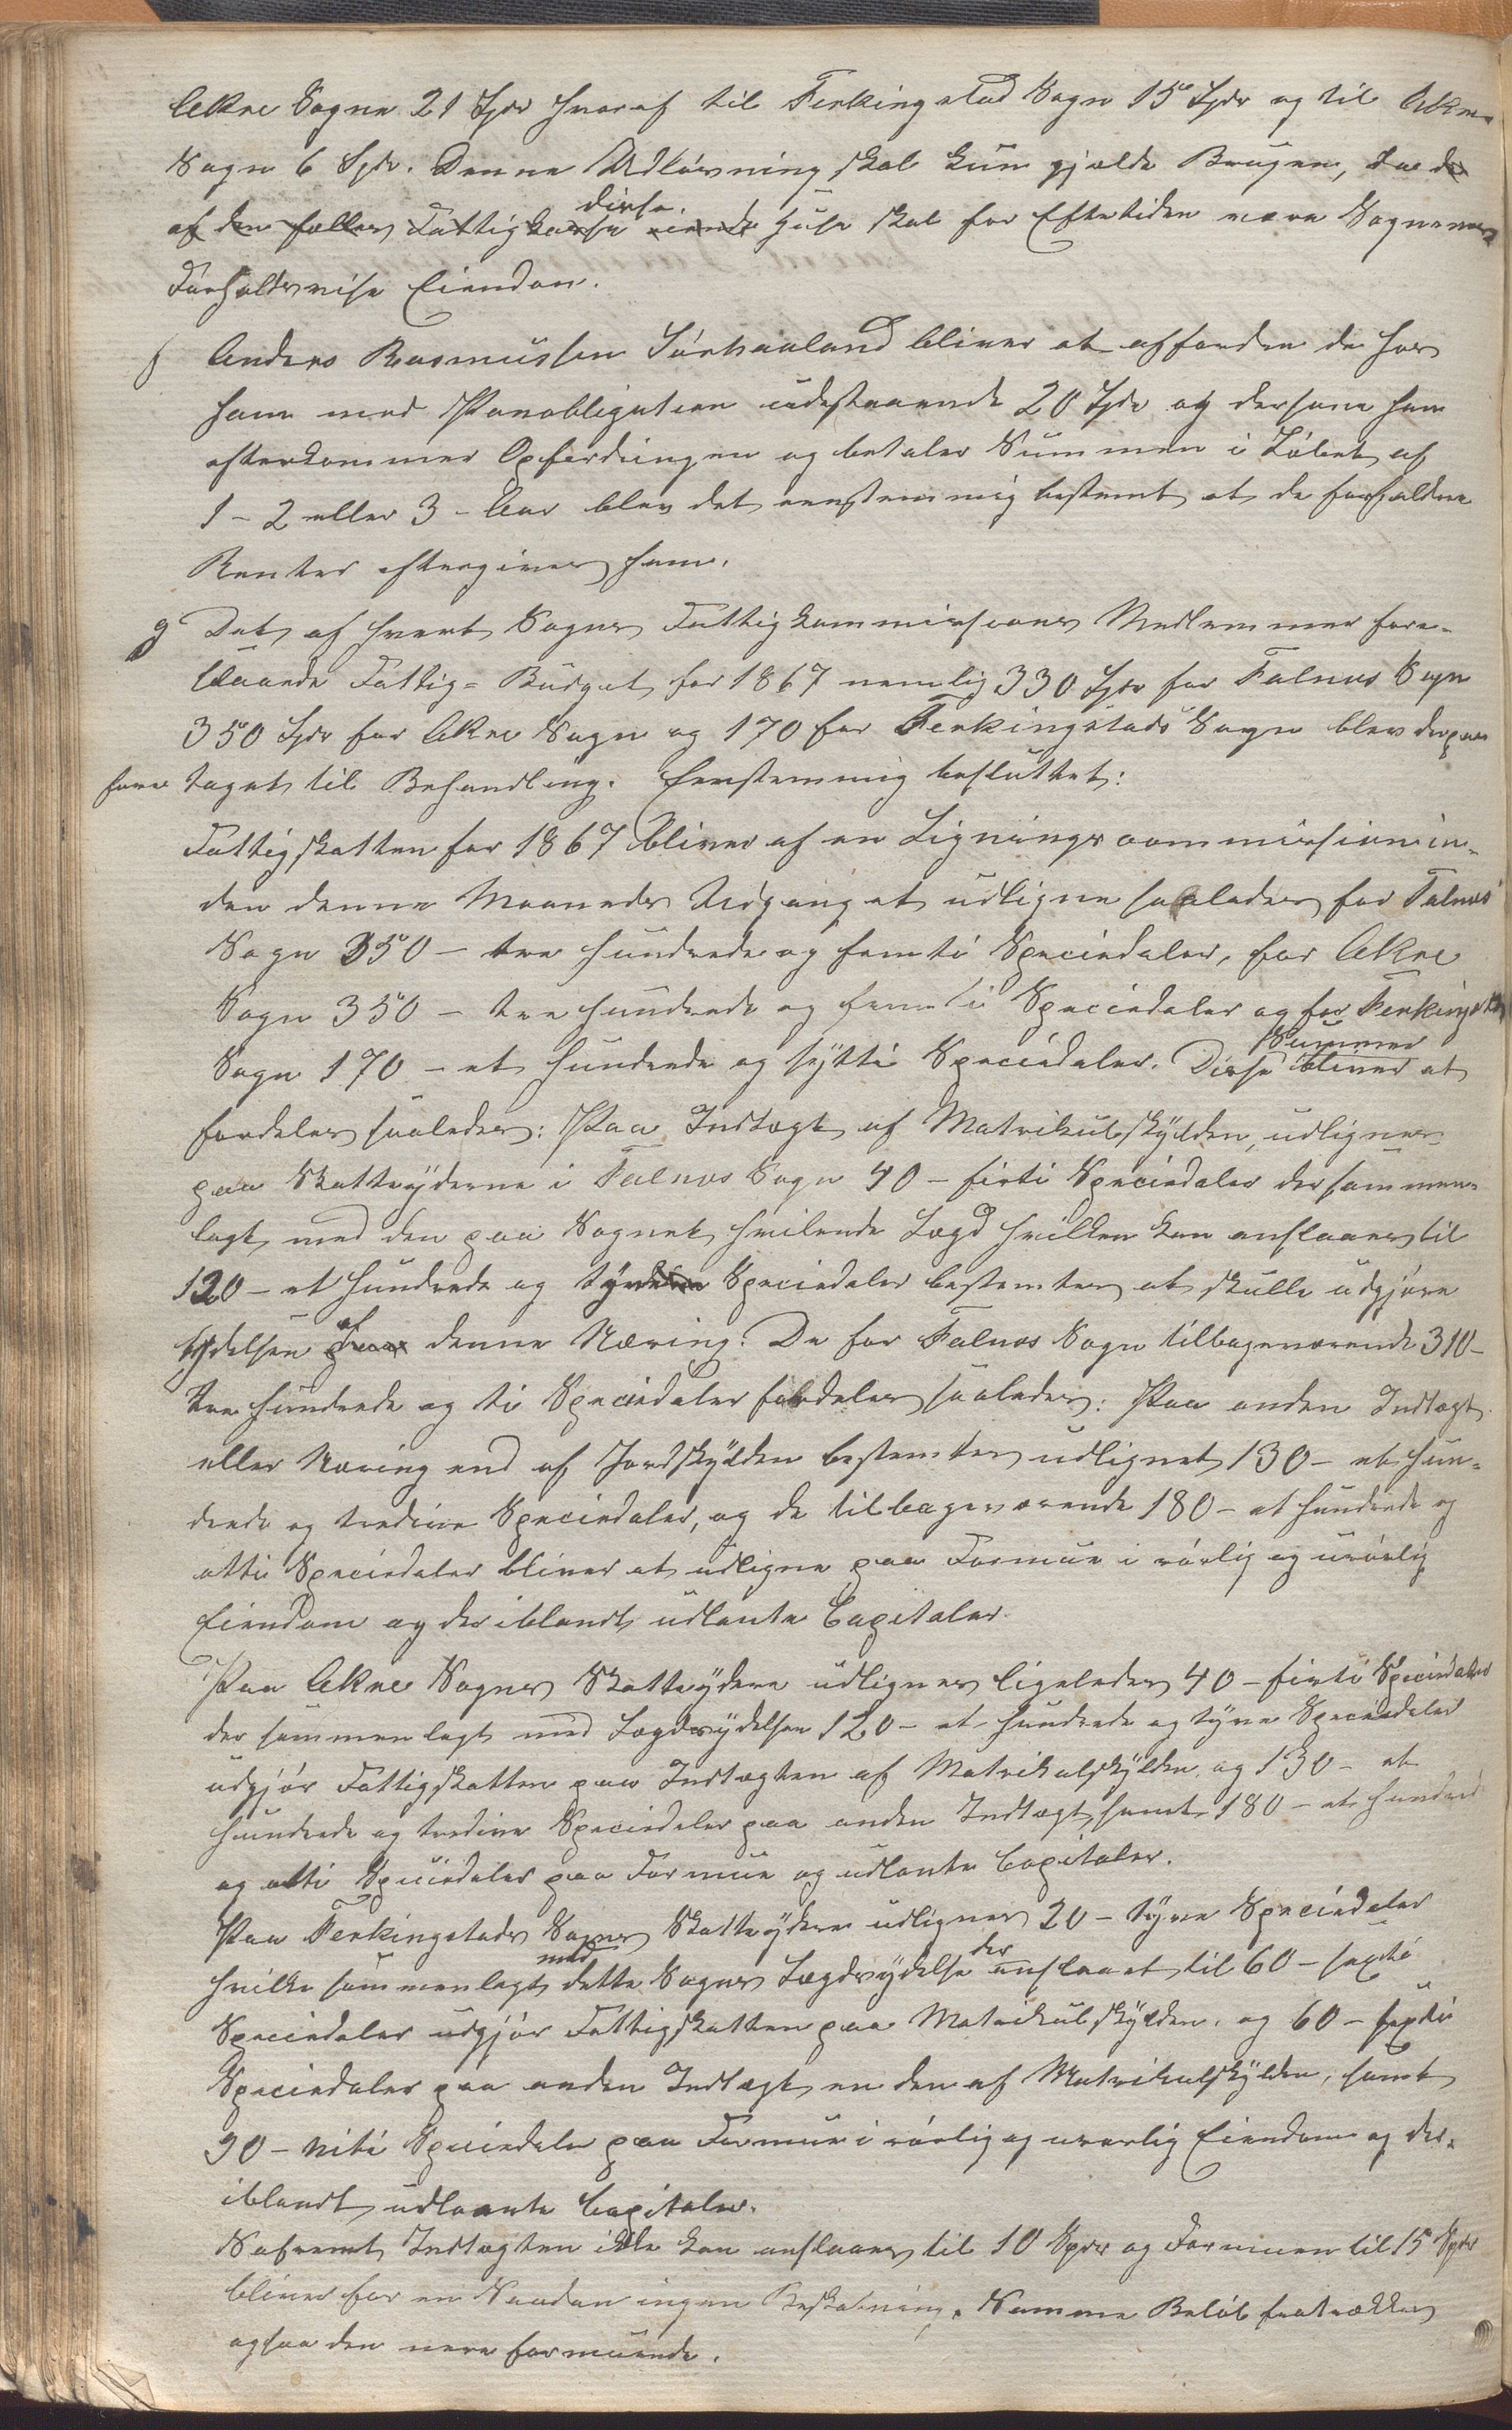 Akre Sogne 21 Spdr hvoraf til Ferkingstad Sogn 15 Spdr og til Akre
Sogn 6 Spdr. Denne Udløsning skal kun gjælde Brugen, da de
af den fælles Fattigkasse eiende disse Huse skal for Eftertiden være Sognenes
Forholdsvise Eiendom.
f Anders Rasmussen Sørhaaland bliver at affordre de hos
ham mod Panobligation udestaaende 20 Spdr og dersom han
efterkommer Opfordringen og betaler Summen i Løbet af
1 - 2 eller 3 - Aar blev det eenstemmig bestemt at de forfaldne
Renter eftergives ham.
g Det af hvert Sogns Fattigkommissions Medlemmer fore-
slaaede Fattig= Budget for 1867 nemlig 330 Spdr for Falnes Sogn
350 Spdr for Akre Sogn og 170 for Ferkingstads Sogn blev derpaa
fore taget til Behandling. Eenstemmig besluttet:
Fattigskatten for 1867 bliver af en Ligningscommission in-
den denne Maaneds Udgang at udligne saaledes for Falnes
Sogn 350 - tre hundrede og femti Speciedaler, for Akre
Sogn 350 - tre hundrede og femti Speciedaler og for Ferkingstad
Sogn 170 - et hundrede og sytti Speciedaler. Disse Summer bliver at
fordeles saaledes: Paa Indtægt af Matrikulskylden udlignes
paa Skatteyderne i Falnes Sogn 40 - firti Speciedaler der sammen-
lagt med den paa Sognet hvilende Lægd hvilken kan anslaaes til
120 - et hundrede og tyve Speciedaler bestemtes at skulle udgjøre
Ydelsen af denne Næring. De for Falnes Sogn tilbageværende 310 -
tre hundrede og ti Speciedaler fordeles saaledes: Paa anden Indtægt
eller Næring end af Jordskylden bestemtes udlignet 130 - et hun-
drede og tredive Speciedaler, og de tilbageværende 180 - et hundrede og
otti Speciedaler bliver at udligne paa Formue i rørlig og urørlig
Eiendom og deriblandt udlaante Capitaler.
Paa Akre Sogns Skatteydere udlignes ligeledes 40 - firti Speciedaler
der sammenlagt med Lægdsydelsen 120 - et hundrede og tyve Speciedaler
udgjør Fattigskatten paa Indtægten af Matrikulskylden og 130 - et
hundrede og tredive Speciedaler paa anden Indtægt samt 180 - et hundred
og otti Speciedaler paa Formue og udlante Capitaler.
Paa Ferkingstads Sogns Skatteydere udlignes 20 - tyve Speciedaler
hvilke sammenlagt med dette Sogns Lægdsydelse der anslaaet til 60 - sexti
Speciedaler udgjør Fattigskatten paa Matrikulskylden. og 60 - sexti
Speciedaler paa anden Indtægt en den af Matrikulskylden, samt
90 - niti Speciedaler paa Formue i rørlig og urørlig Eiendom og der-
iblandt udlaante Capitaler.
Safremt Indtægten ikke kan anslaaes til 10 Spdr og Formuen til 15 Spdr
bliver for en Saadan ingen Beskatning. Samme Beløb fratrækkes
ogsaa den mere formuende.